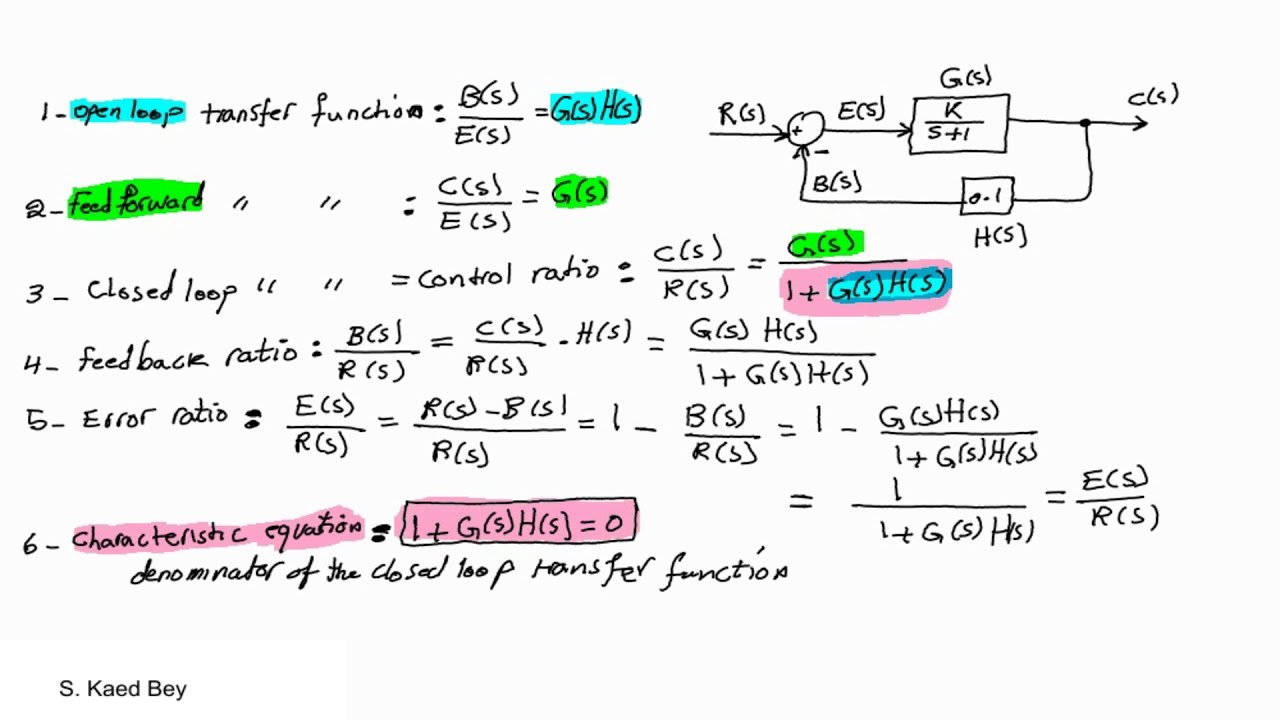 1- open loop transfer function : B(s)/E(s) = G(s)H(s)
2- Feed forward " " : C(s)/E(s) = G(s)
3- Closed loop " " = control ratio : C(s)/R(s) = G(s)/1 + G(s)H(s)
4- feedback ratio : B(s)/R(s) = C(s)/R(s) . H(s) = G(s) H(s)/1 + G(s)H(s)
5- Error ratio : E(s)/R(s) = R(s) - B(s)/R(s) = 1 - B(s)/R(s) = 1 - G(s)H(s)/1 + G(s)H(s)
= 1/1 + G(s)H(s) = E(s)/R(s)
6- Characteristic equation : 1 + G(s)H(s) = 0
denominator of the closed loop transfer function
G(s)
R(s) + - E(s) K/s+1 C(s)
B(s) 0.1
H(s)
S. Kaed Bey